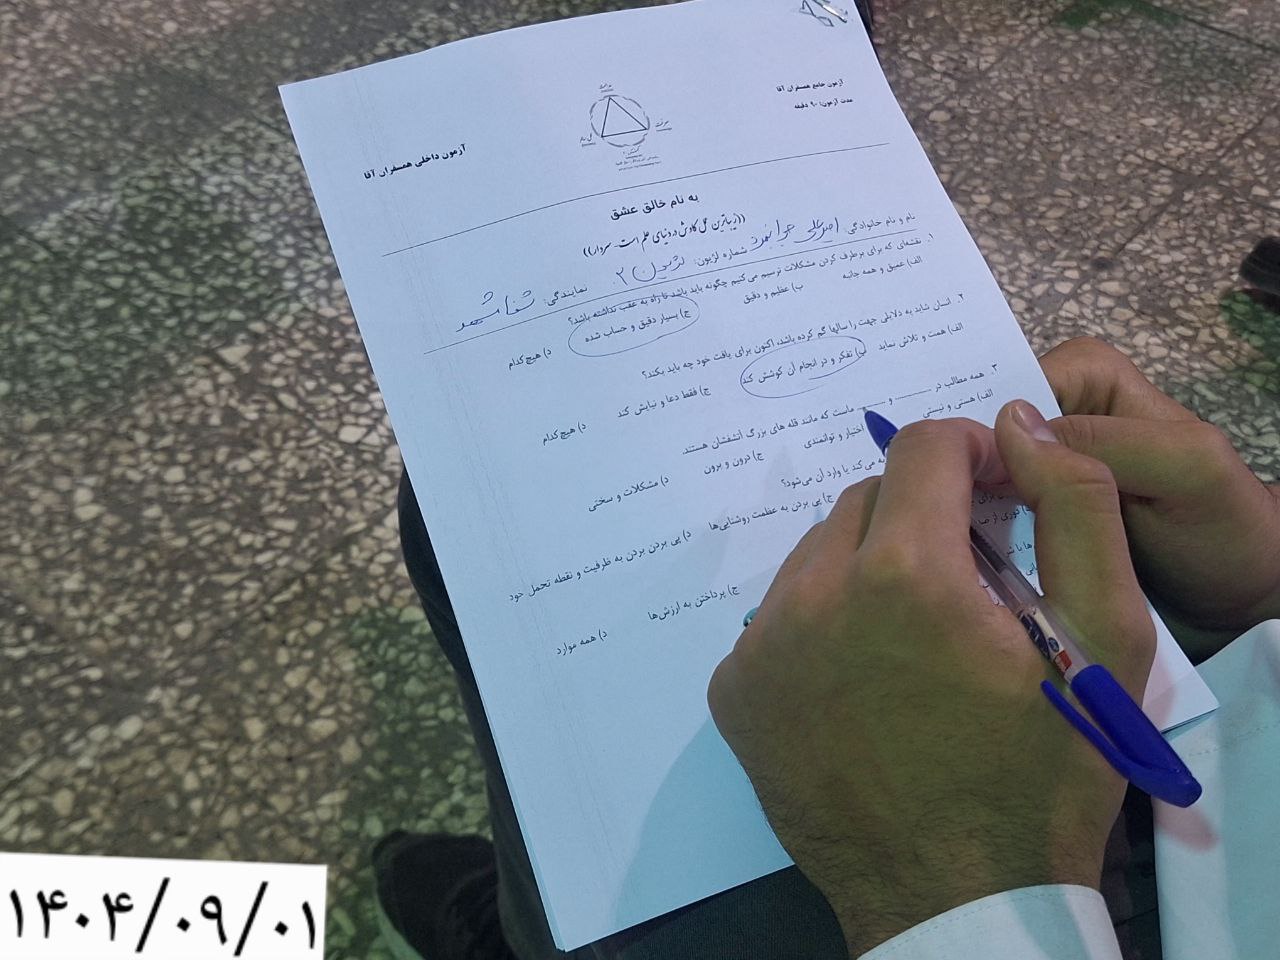 آزمون جامع همسفران آقا
مدت آزمون: ۹۰ دقیقه
آزمون داخلی همسفران آقا
به نام خالق عشق
((زیباترین محل کاوش در دنیای علم است. سردار))
نام و نام خانوادگی: امیرعلی شماره لژیون: لژیون ۲ نمایندگی:
۱. نقشه‌ای که برای برطرف کردن مشکلات ترسیم می‌کنیم چگونه باید باشد تا راه به عقب نداشته باشد؟
الف) عمیق و همه جانبه ب) عظیم و دقیق ج) بسیار دقیق و حساب شده د) هیچ‌کدام
۲. انسان شاید به دلایلی جهت را سالها گم کرده باشد، اکنون برای یافت خود چه باید بکند؟
الف) همت و تلاش نماید ب) تفکر و در انجام آن کوشش کند ج) فقط دعا و نیایش کند د) هیچ‌کدام
۳. همه مطالب در .............. و .......... ماست که مانند قله های بزرگ آتشفشان هستند.
الف) هستی و نیستی اختیار و توانمندی ج) درون و برون د) مشکلات و سختی
می‌کند یا وارد آن می‌شود؟
ج) پی بردن به عظمت روشنایی‌ها د) پی بردن بردن به ظرفیت و نقطه تحمل خود
ج) پرداختن به ارزش‌ها د) همه موارد
۱۴۰۴/۰۹/۰۱